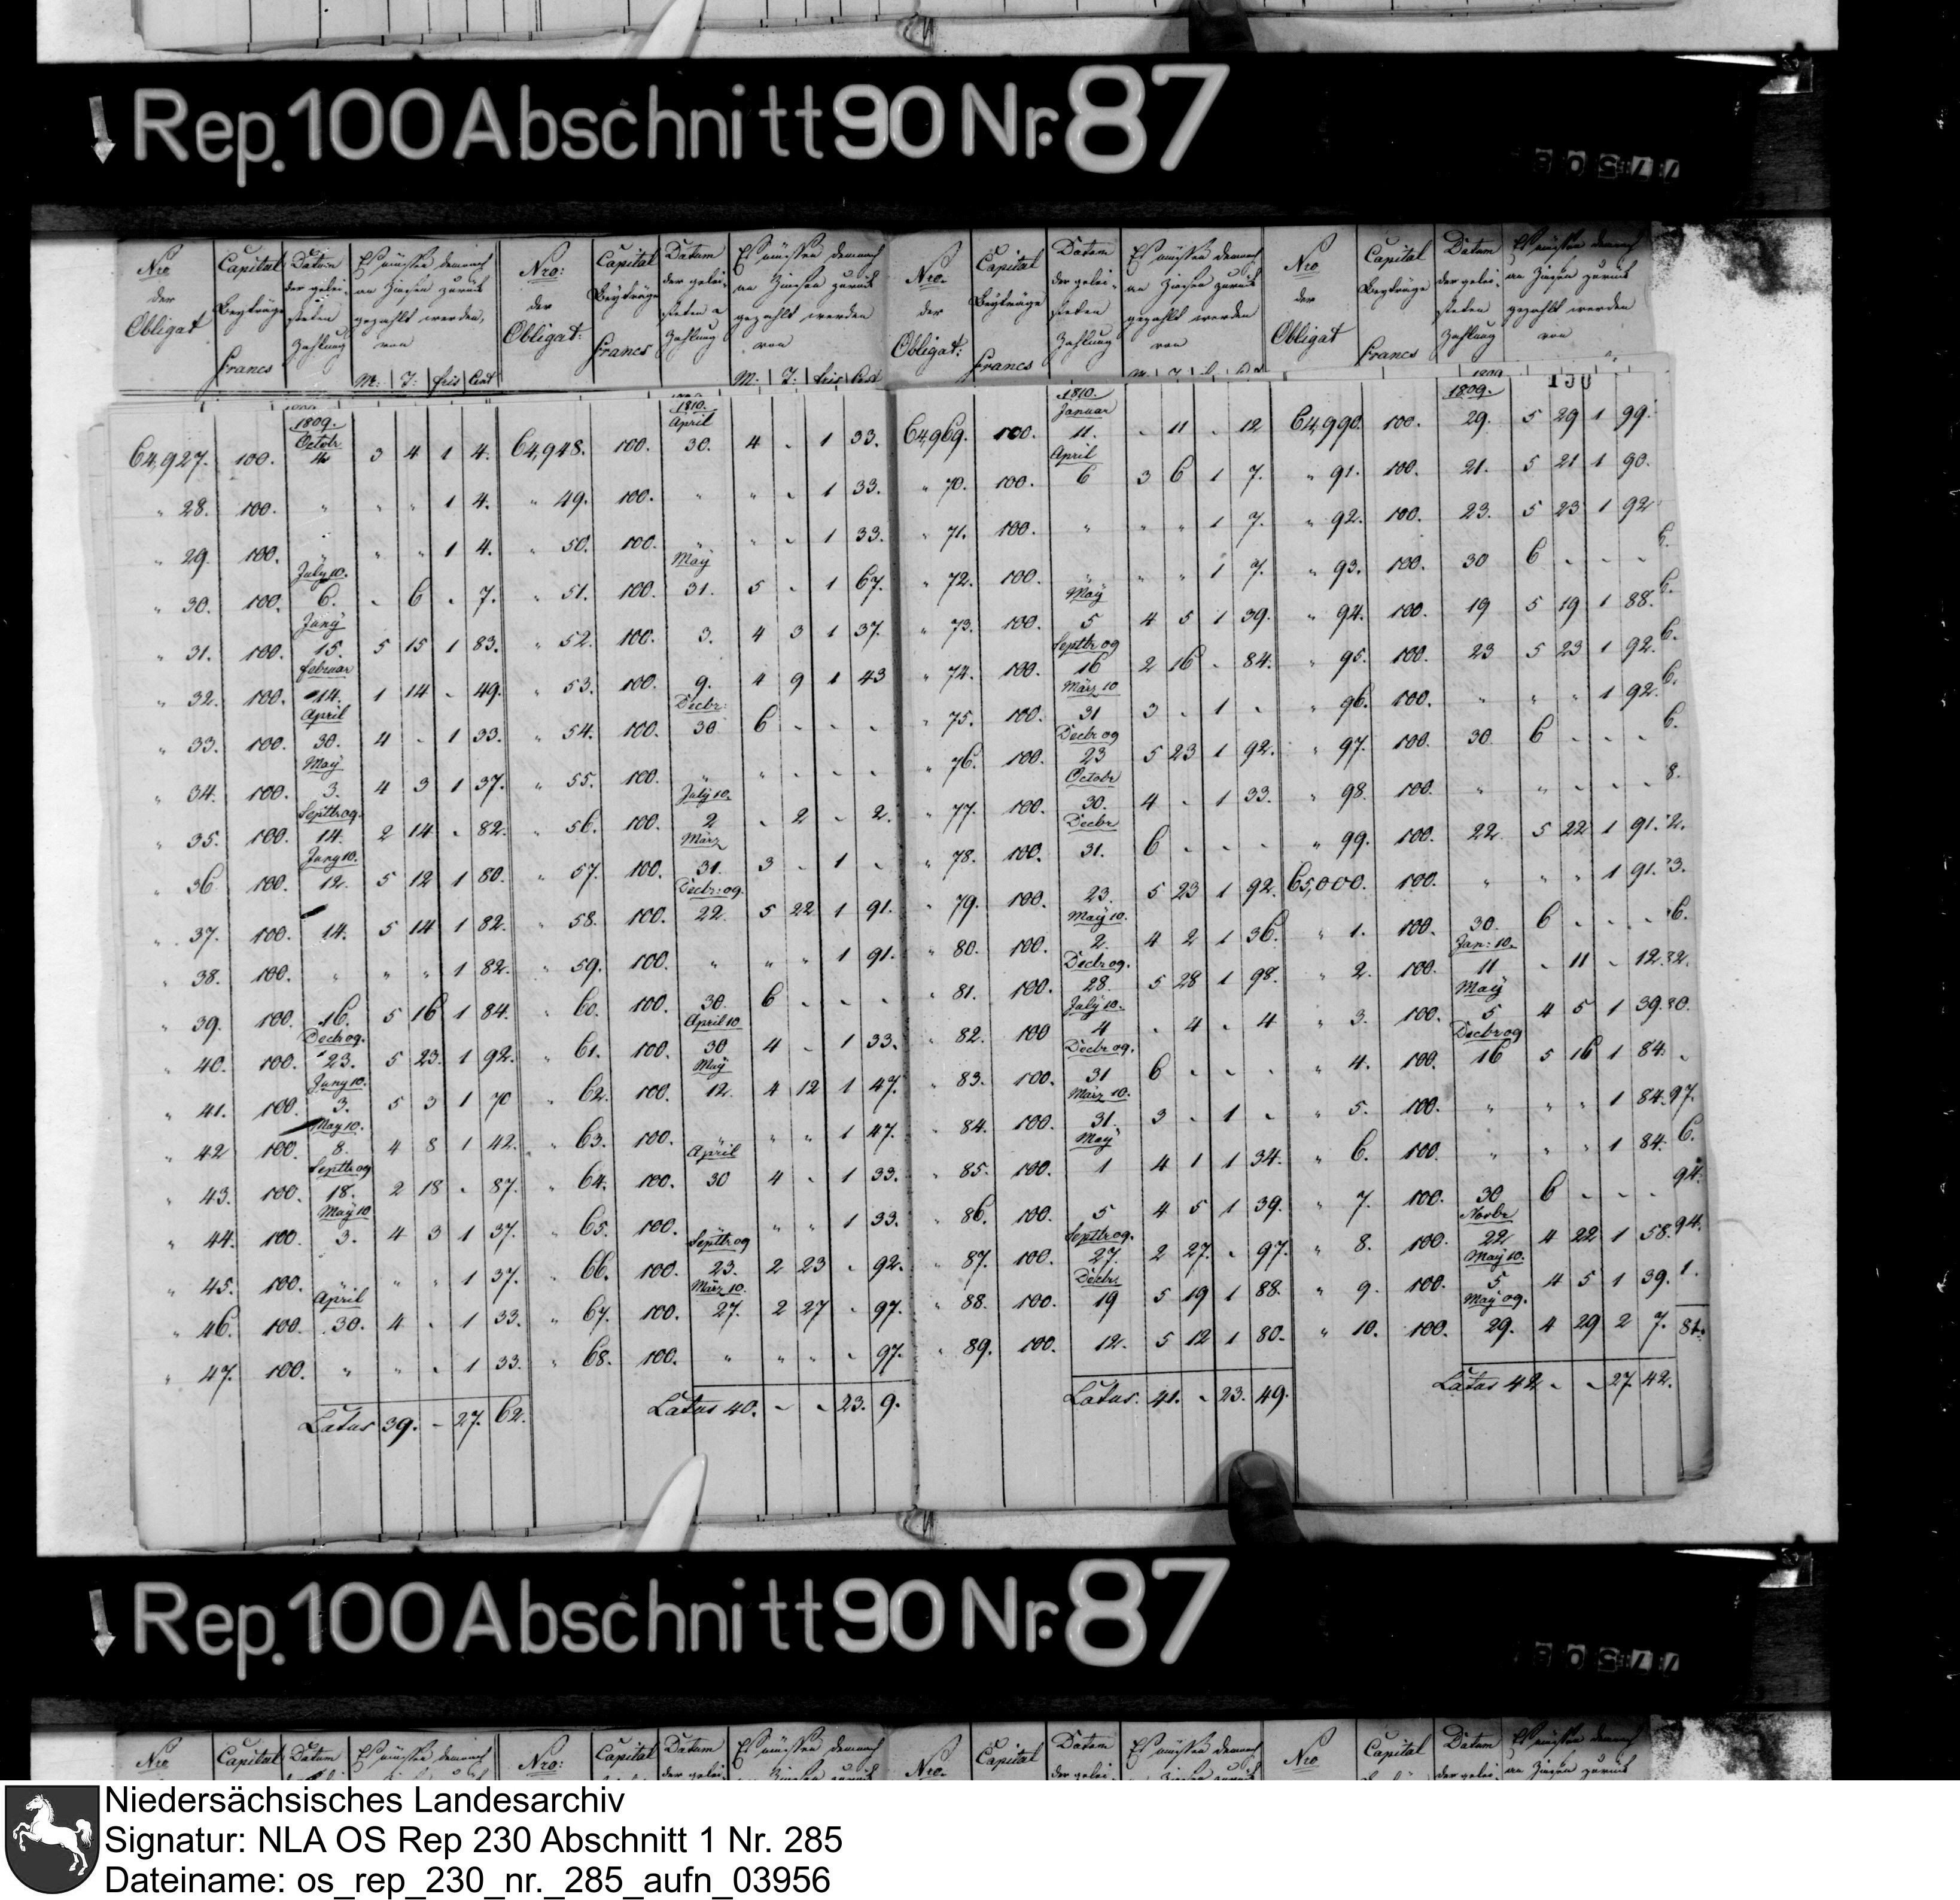 Rep. 100 Abschnitt 90 Nr. 87
Nro der Obligat | Capital Beyträge Francs | Datum der gelei- steten Zahlung | Es müssen demnach an Zinsen zurück gezahlt werden, von M: T: frcs Cent
Nro: der Obligat: | Capital Beyträge Francs | Datum der gelei- steten Zahlung | Es müssen demnach an Zinsen zurück gezahlt werden von M. T. frcs Cent
Nro. der Obligat: | Capital Beyträge Francs | Datum der gelei- steten Zahlung | Es müssen demnach an Zinsen zurück gezahlt werden von
Nro der Obligat | Capital Beyträge Francs | Datum der gelei- steten Zahlung | Es müssen demnach an Zinsen zurück gezahlt werden von
130
1809. Octobr
64,927. 100. 4 3 4 1 4.
" 28. 100. " " " 1 4.
" 29. 100. " " " 1 4.
July 10.
" 30. 100. 6. - 6 - 7.
Juny
" 31. 100. 15. 5 15 1 83.
Februar
" 32. 100. 14. 1 14 - 49.
April
" 33. 100. 30. 4 - 1 33.
May
" 34. 100. 3. 4 3 1 37.
Septbr 09.
" 35. 100. 14. 2 14 - 82.
Juny 10.
" 36 100. 12. 5 12 1 80.
" 37. 100. 14. 5 14 1 82.
" 38. 100. " " " 1 82.
" 39. 100. 16. 5 16 1 84.
Decbr 09.
" 40. 100. 23. 5 23. 1 92.
Juny 10.
" 41. 100. 3. 5 3 1 70
May 10.
" 42 100. 8. 4 8 1 42.
Septbr 09
" 43. 100. 18. 2 18 - 87.
May 10
" 44. 100. 3. 4 3 1 37.
" 45. 100. " " " 1 37.
April
" 46. 100. 30. 4 - 1 33.
" 47. 100. " " - 1 33.
Latus 39. - 27. 62.
1810. April
64,948. 100. 30. 4 - 1 33.
" 49. 100. " " - 1 33.
" 50. 100. " " - 1 33.
May
" 51. 100. 31. 5 - 1 67.
" 52. 100. 3. 4 3 1 37.
" 53. 100. 9. 4 9 1 43
Decbr:
" 54. 100. 30 6 - - -
" 55. 100. " " - - -
July 10.
" 56. 100. 2 - 2 - 2.
März
" 57. 100. 31. 3 - 1 -
Decbr: 09.
" 58. 100. 22. 5 22 1 91.
" 59. 100. " " " 1 91.
" 60. 100. 30. 6 - - -
April 10
" 61. 100. 30 4 - 1 33.
May
" 62. 100. 12. 4 12 1 47.
" 63. 100. " " " 1 47.
April
" 64. 100. 30 4 - 1 33.
" 65. 100. " " " 1 33.
Septbr 09
" 66. 100. 23. 2 23 - 92.
März 10.
" 67. 100. 27. 2 27 - 97.
" 68. 100. " " " - 97.
Latus 40. - - 23. 9.
1810. Januar
64,969. 100. 11. - 11 - 12
April
" 70. 100. 6 3 6 1 7.
" 71. 100. " " " 1 7.
" 72. 100. " " " 1 7.
May
" 73. 100. 5 4 5 1 39.
Septbr 09
" 74. 100. 16 2 16 - 84.
März 10
" 75. 100. 31 3 - 1 -
Decbr 09
" 76. 100. 23 5 23 1 92.
Octobr
" 77. 100. 30. 4 - 1 33.
Decbr
" 78. 100. 31. 6 - - -
" 79. 100. 23. 5 23 1 92.
May 10.
" 80. 100. 2. 4 2 1 36.
Decbr 09.
" 81. 100. 28. 5 28 1 98.
July 10.
" 82. 100 4 - 4 - 4
Decbr 09.
" 83. 100. 31 6 - - -
März 10.
" 84. 100. 31. 3 - 1 -
May
" 85. 100. 1 4 1 1 34.
" 86. 100. 5 4 5 1 39.
Septbr 09.
" 87. 100. 27. 2 27. - 97.
Decbr
" 88. 100. 19 5 19 1 88.
" 89. 100. 12. 5 12 1 80.
Latus. 41. - 23. 49.
1809.
64,990. 100. 29. 5 29 1 99.
" 91. 100. 21. 5 21 1 90.
" 92. 100. 23. 5 23 1 92
" 93. 100. 30 6 - - -
" 94. 100. 19 5 19 1 88.
" 95. 100. 23 5 23 1 92.
" 96. 100. " " " 1 92.
" 97. 100. 30. 6 - - -
" 98. 100. " " - - -
" 99. 100. 22. 5 22 1 91.
65,000. 100. " " " 1 91.
" 1. 100. 30. 6 - - -
Jan: 10.
" 2. 100. 11 - 11 - 12.
May
" 3. 100. 5 4 5 1 39.
Decbr 09
" 4. 100. 16 5 16 1 84.
" 5. 100. " " " 1 84.
" 6. 100. " " " 1 84.
" 7. 100. 30 6 - - -
Novbr
" 8. 100. 22 4 22 1 58.
May 10.
" 9. 100. 5 4 5 1 39.
May 09.
" 10. 100. 29. 4 29 2 7.
Latus 42 - - 27. 42.
Rep. 100 Abschnitt 90 Nr. 87
Nro Capital Datum Es müssen demnach Nro: Capital Datum Es müssen demnach Nro. Capital Datum Es müssen demnach Nro Capital Datum Es müssen demnach
Niedersächsisches Landesarchiv
Signatur: NLA OS Rep 230 Abschnitt 1 Nr. 285
Dateiname: os_rep_230_nr._285_aufn_03956